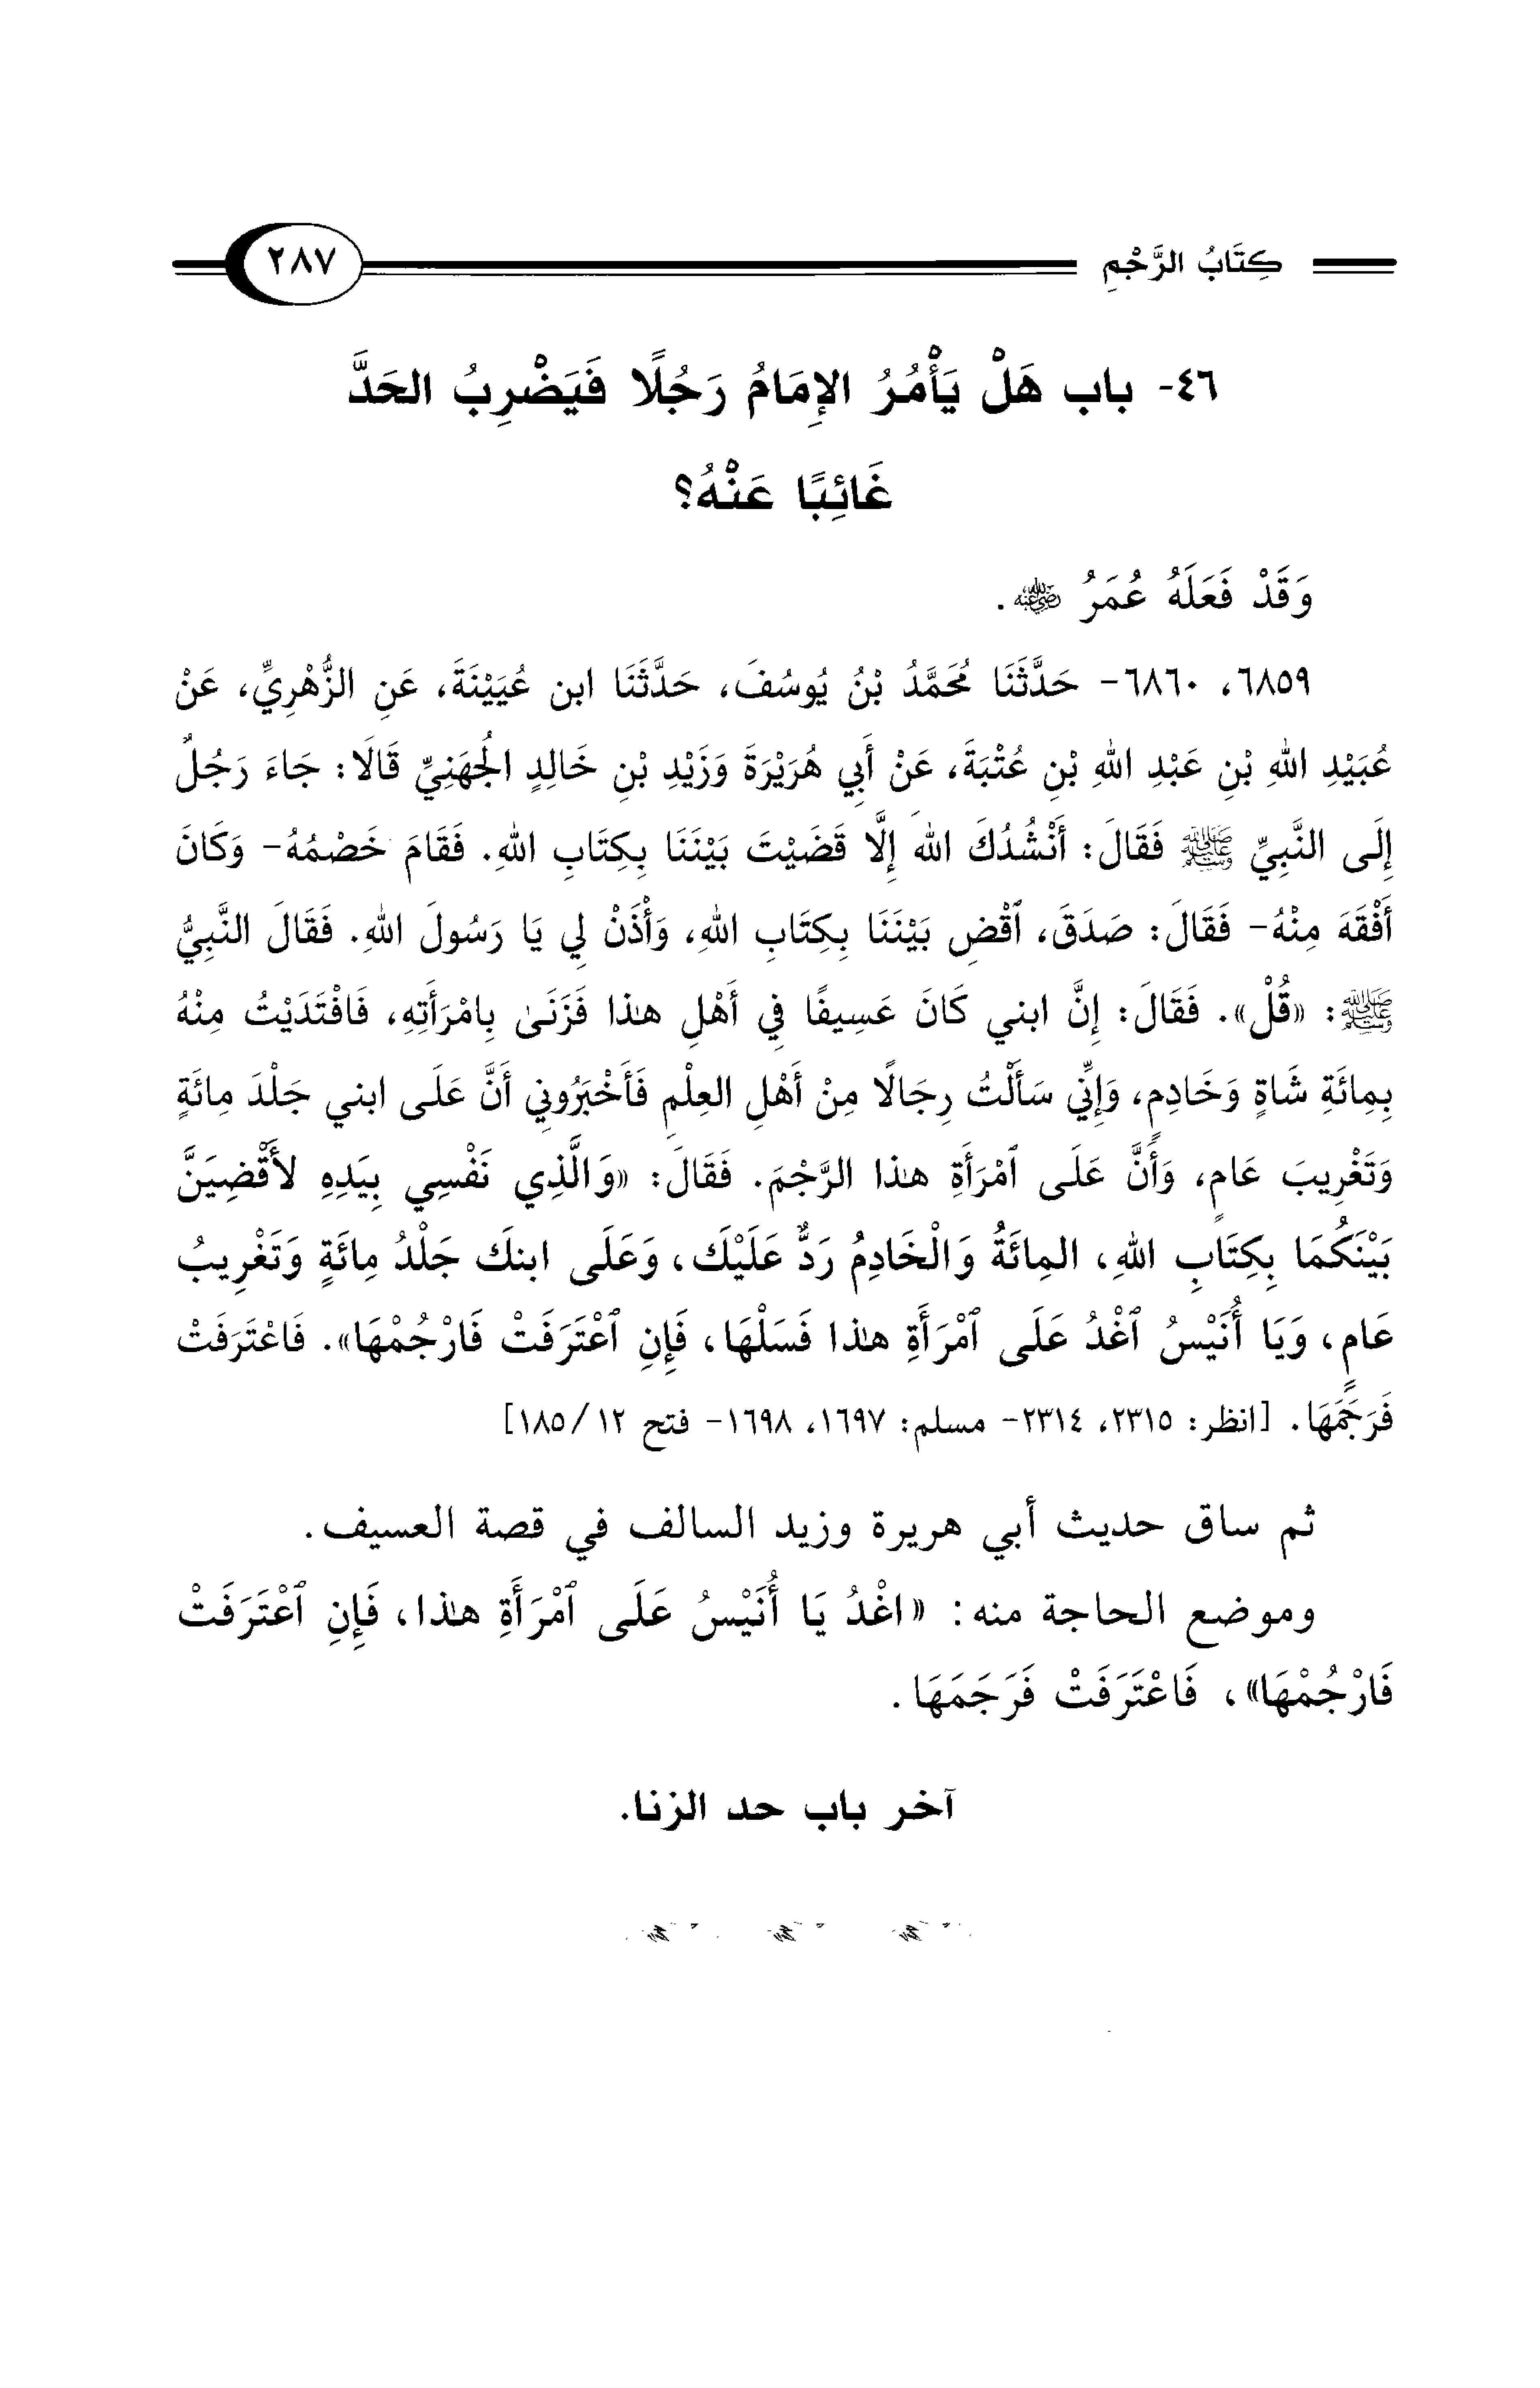 كِتَابُ الرَّجْمِ ٢٨٧
٤٦- باب هَلْ يَأْمُرُ الإِمَامُ رَجُلًا فَيَضْرِبُ الحَدَّ
غَائِبًا عَنْهُ؟
وَقَدْ فَعَلَهُ عُمَرُ رضي الله عنه.
٦٨٥٩، ٦٨٦٠- حَدَّثَنَا مُحَمَّدُ بْنُ يُوسُفَ، حَدَّثَنَا ابن عُيَيْنَةَ، عَنِ الزُّهْرِيِّ، عَنْ
عُبَيْدِ اللهِ بْنِ عَبْدِ اللهِ بْنِ عُتْبَةَ، عَنْ أَبِي هُرَيْرَةَ وَزَيْدِ بْنِ خَالِدٍ الجُهَنِيِّ قَالَا: جَاءَ رَجُلٌ
إِلَى النَّبِيِّ ﷺ فَقَالَ: أَنْشُدُكَ اللهَ إِلَّا قَضَيْتَ بَيْنَنَا بِكِتَابِ اللهِ. فَقَامَ خَصْمُهُ- وَكَانَ
أَفْقَهَ مِنْهُ- فَقَالَ: صَدَقَ، ٱقْضِ بَيْنَنَا بِكِتَابِ اللهِ، وَأْذَنْ لِي يَا رَسُولَ اللهِ. فَقَالَ النَّبِيُّ
ﷺ: «قُلْ». فَقَالَ: إِنَّ ابني كَانَ عَسِيفًا فِي أَهْلِ هٰذا فَزَنَىٰ بِامْرَأَتِهِ، فَافْتَدَيْتُ مِنْهُ
بِمِائَةِ شَاةٍ وَخَادِمٍ، وَإِنِّي سَأَلْتُ رِجَالًا مِنْ أَهْلِ العِلْمِ فَأَخْبَرُونِي أَنَّ عَلَى ابني جَلْدَ مِائَةٍ
وَتَغْرِيبَ عَامٍ، وَأَنَّ عَلَى ٱمْرَأَةِ هٰذا الرَّجْمَ. فَقَالَ: «وَالَّذِي نَفْسِي بِيَدِهِ لأَقْضِيَنَّ
بَيْنَكُمَا بِكِتَابِ اللهِ، المِائَةُ وَالْخَادِمُ رَدٌّ عَلَيْكَ، وَعَلَى ابنكَ جَلْدُ مِائَةٍ وَتَغْرِيبُ
عَامٍ، وَيَا أُنَيْسُ ٱغْدُ عَلَى ٱمْرَأَةِ هٰذا فَسَلْهَا، فَإِنِ ٱعْتَرَفَتْ فَارْجُمْهَا». فَاعْتَرَفَتْ
فَرَجَمَهَا. [انظر: ٢٣١٥، ٢٣١٤- مسلم: ١٦٩٧، ١٦٩٨- فتح ١٢/ ١٨٥]
ثم ساق حديث أبي هريرة وزيد السالف في قصة العسيف.
وموضع الحاجة منه: «اغْدُ يَا أُنَيْسُ عَلَى ٱمْرَأَةِ هٰذا، فَإِنِ ٱعْتَرَفَتْ
فَارْجُمْهَا»، فَاعْتَرَفَتْ فَرَجَمَهَا.
آخر باب حد الزنا.